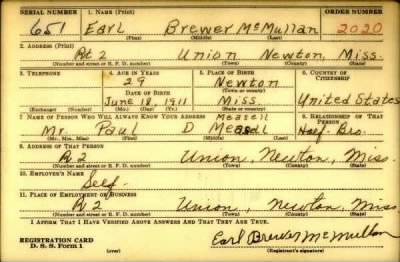 SERIAL NUMBER 1. NAME (Print) ORDER NUMBER
651 Earl Brewer McMullan 2020
(First) (Middle) (Last)
2. ADDRESS (Print)
Rt 2 Union, Newton, Miss.
(Number and street or R. F. D. number) (Town) (County) (State)
3. TELEPHONE 4. AGE IN YEARS 5. PLACE OF BIRTH 6. COUNTRY OF CITIZENSHIP
29 Newton
DATE OF BIRTH (Town or county)
June 18, 1911 Miss. United States
(Exchange) (Number) (Mo.) (Day) (Yr.) (State or country)
7. NAME OF PERSON WHO WILL ALWAYS KNOW YOUR ADDRESS 8. RELATIONSHIP OF THAT PERSON
Measell
Mr. Paul D Measel Half-Bro.
(Mr., Mrs., Miss) (First) (Middle) (Last)
9. ADDRESS OF THAT PERSON
R. 2 Union, Newton, Miss.
(Number and street or R. F. D. number) (Town) (County) (State)
10. EMPLOYER'S NAME
Self.
11. PLACE OF EMPLOYMENT OR BUSINESS
R. 2 Union, Newton, Miss
(Number and street or R. F. D. number) (Town) (County) (State)
I AFFIRM THAT I HAVE VERIFIED ABOVE ANSWERS AND THAT THEY ARE TRUE.
REGISTRATION CARD
D. S. S. Form 1 Earl Brewer McMullan
(Registrant's signature)